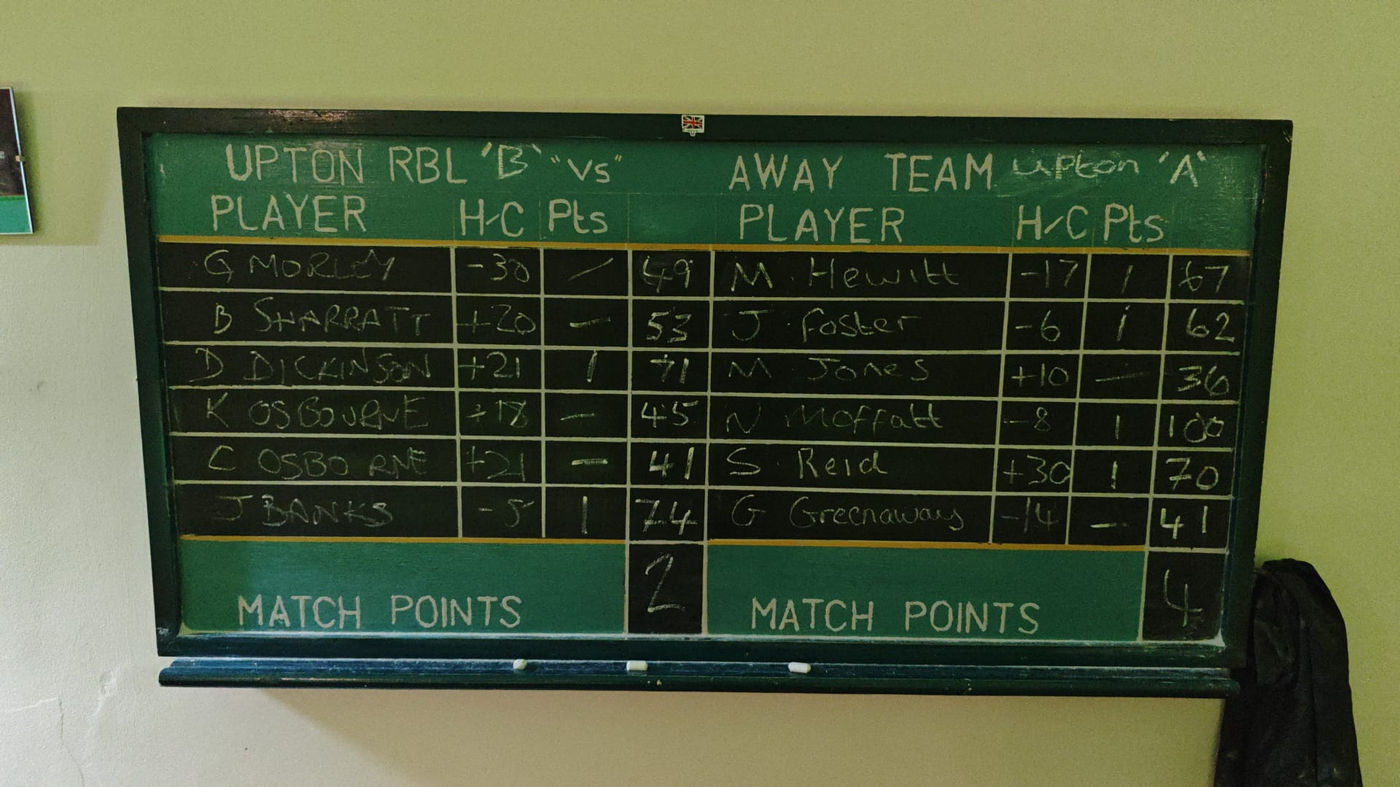 UPTON RBL 'B' "Vs" AWAY TEAM Upton 'A'
PLAYER H/C Pts PLAYER H/C Pts
G MORLEY -30 / 49 M. Hewitt -17 1 67
B SHARRATT +20 — 53 J. Foster -6 1 62
D DICKINSON +21 1 71 M Jones +10 — 36
K OSBOURNE +18 — 45 N Moffatt -8 1 100
C OSBO RNE +21 — 41 S. Reid +30 1 70
J BANKS -5 1 74 G Greenaway -14 — 41
MATCH POINTS 2 MATCH POINTS 4